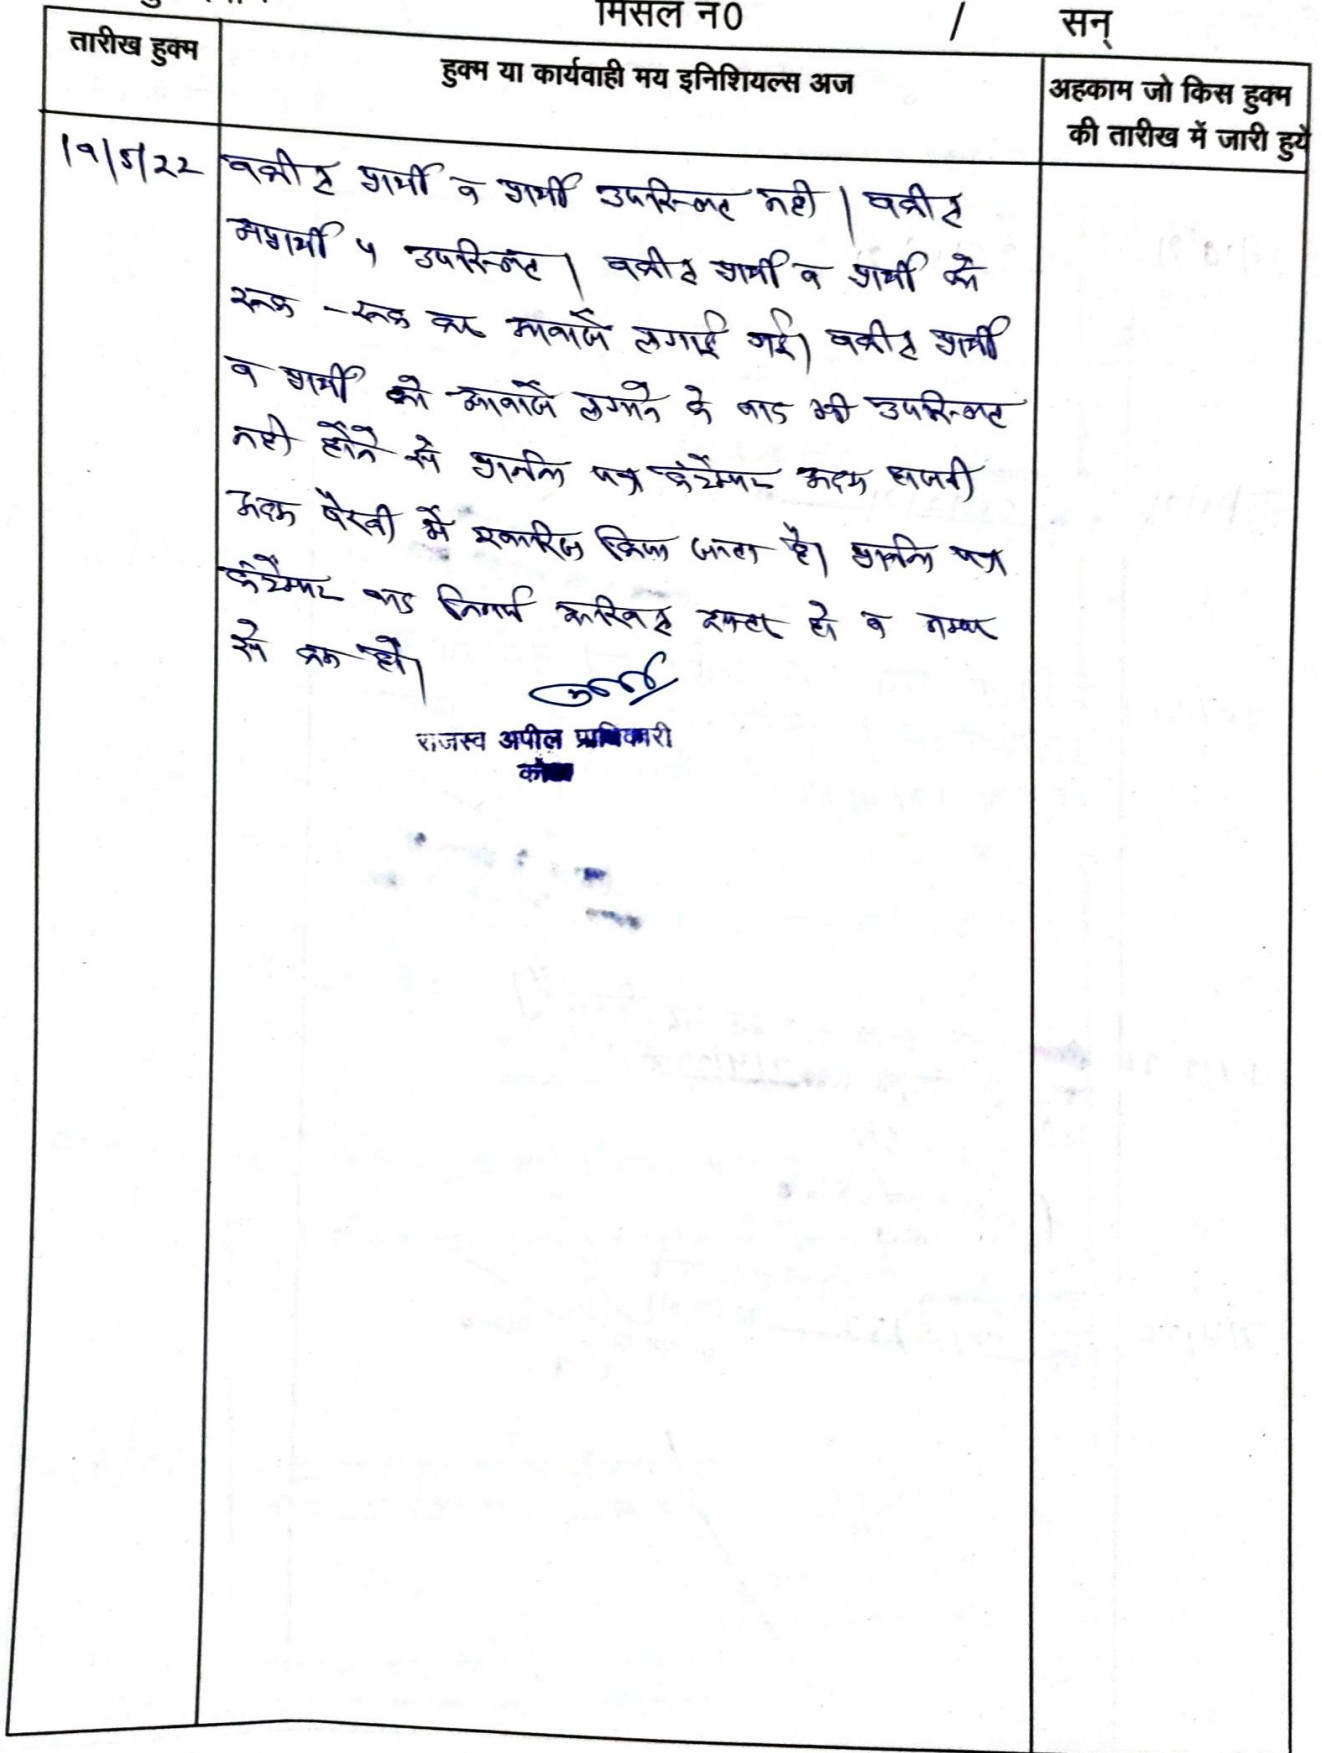 मिसल न0 / सन्
तारीख हुक्म
हुक्म या कार्यवाही मय इनिशियल्स अज
अहकाम जो किस हुक्म
की तारीख में जारी हुये
19/5/22
वकील प्रार्थी व प्रार्थी उपस्थित नही। वकील
अप्रार्थी 5 उपस्थित। वकील प्रार्थी व प्रार्थी को
रूक-रूक कर आवाजे लगाई गई। वकील प्रार्थी
व प्रार्थी को आवाजे लगाने के बाद भी उपस्थित
नही होने से प्रार्थना पत्र कंटेम्पट अदम हाजरी
अदम पैरवी में खारिज किया जाता है। प्रार्थना पत्र
कंटेम्पट बाद निर्णय दाखिल दफ्तर हो व नम्बर
से कम हो।
राजस्व अपील प्राधिकारी